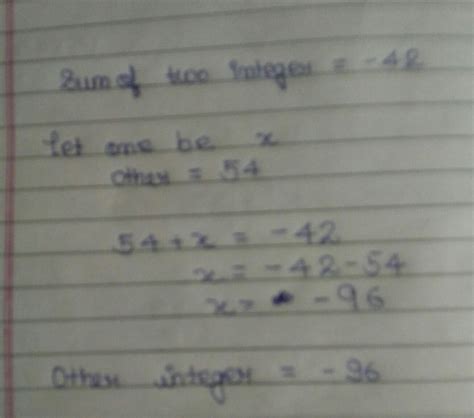 Sum of two integer = -42
let one be x
other = 54
54 + x = -42
x = -42-54
x = -96
Other integer = -96